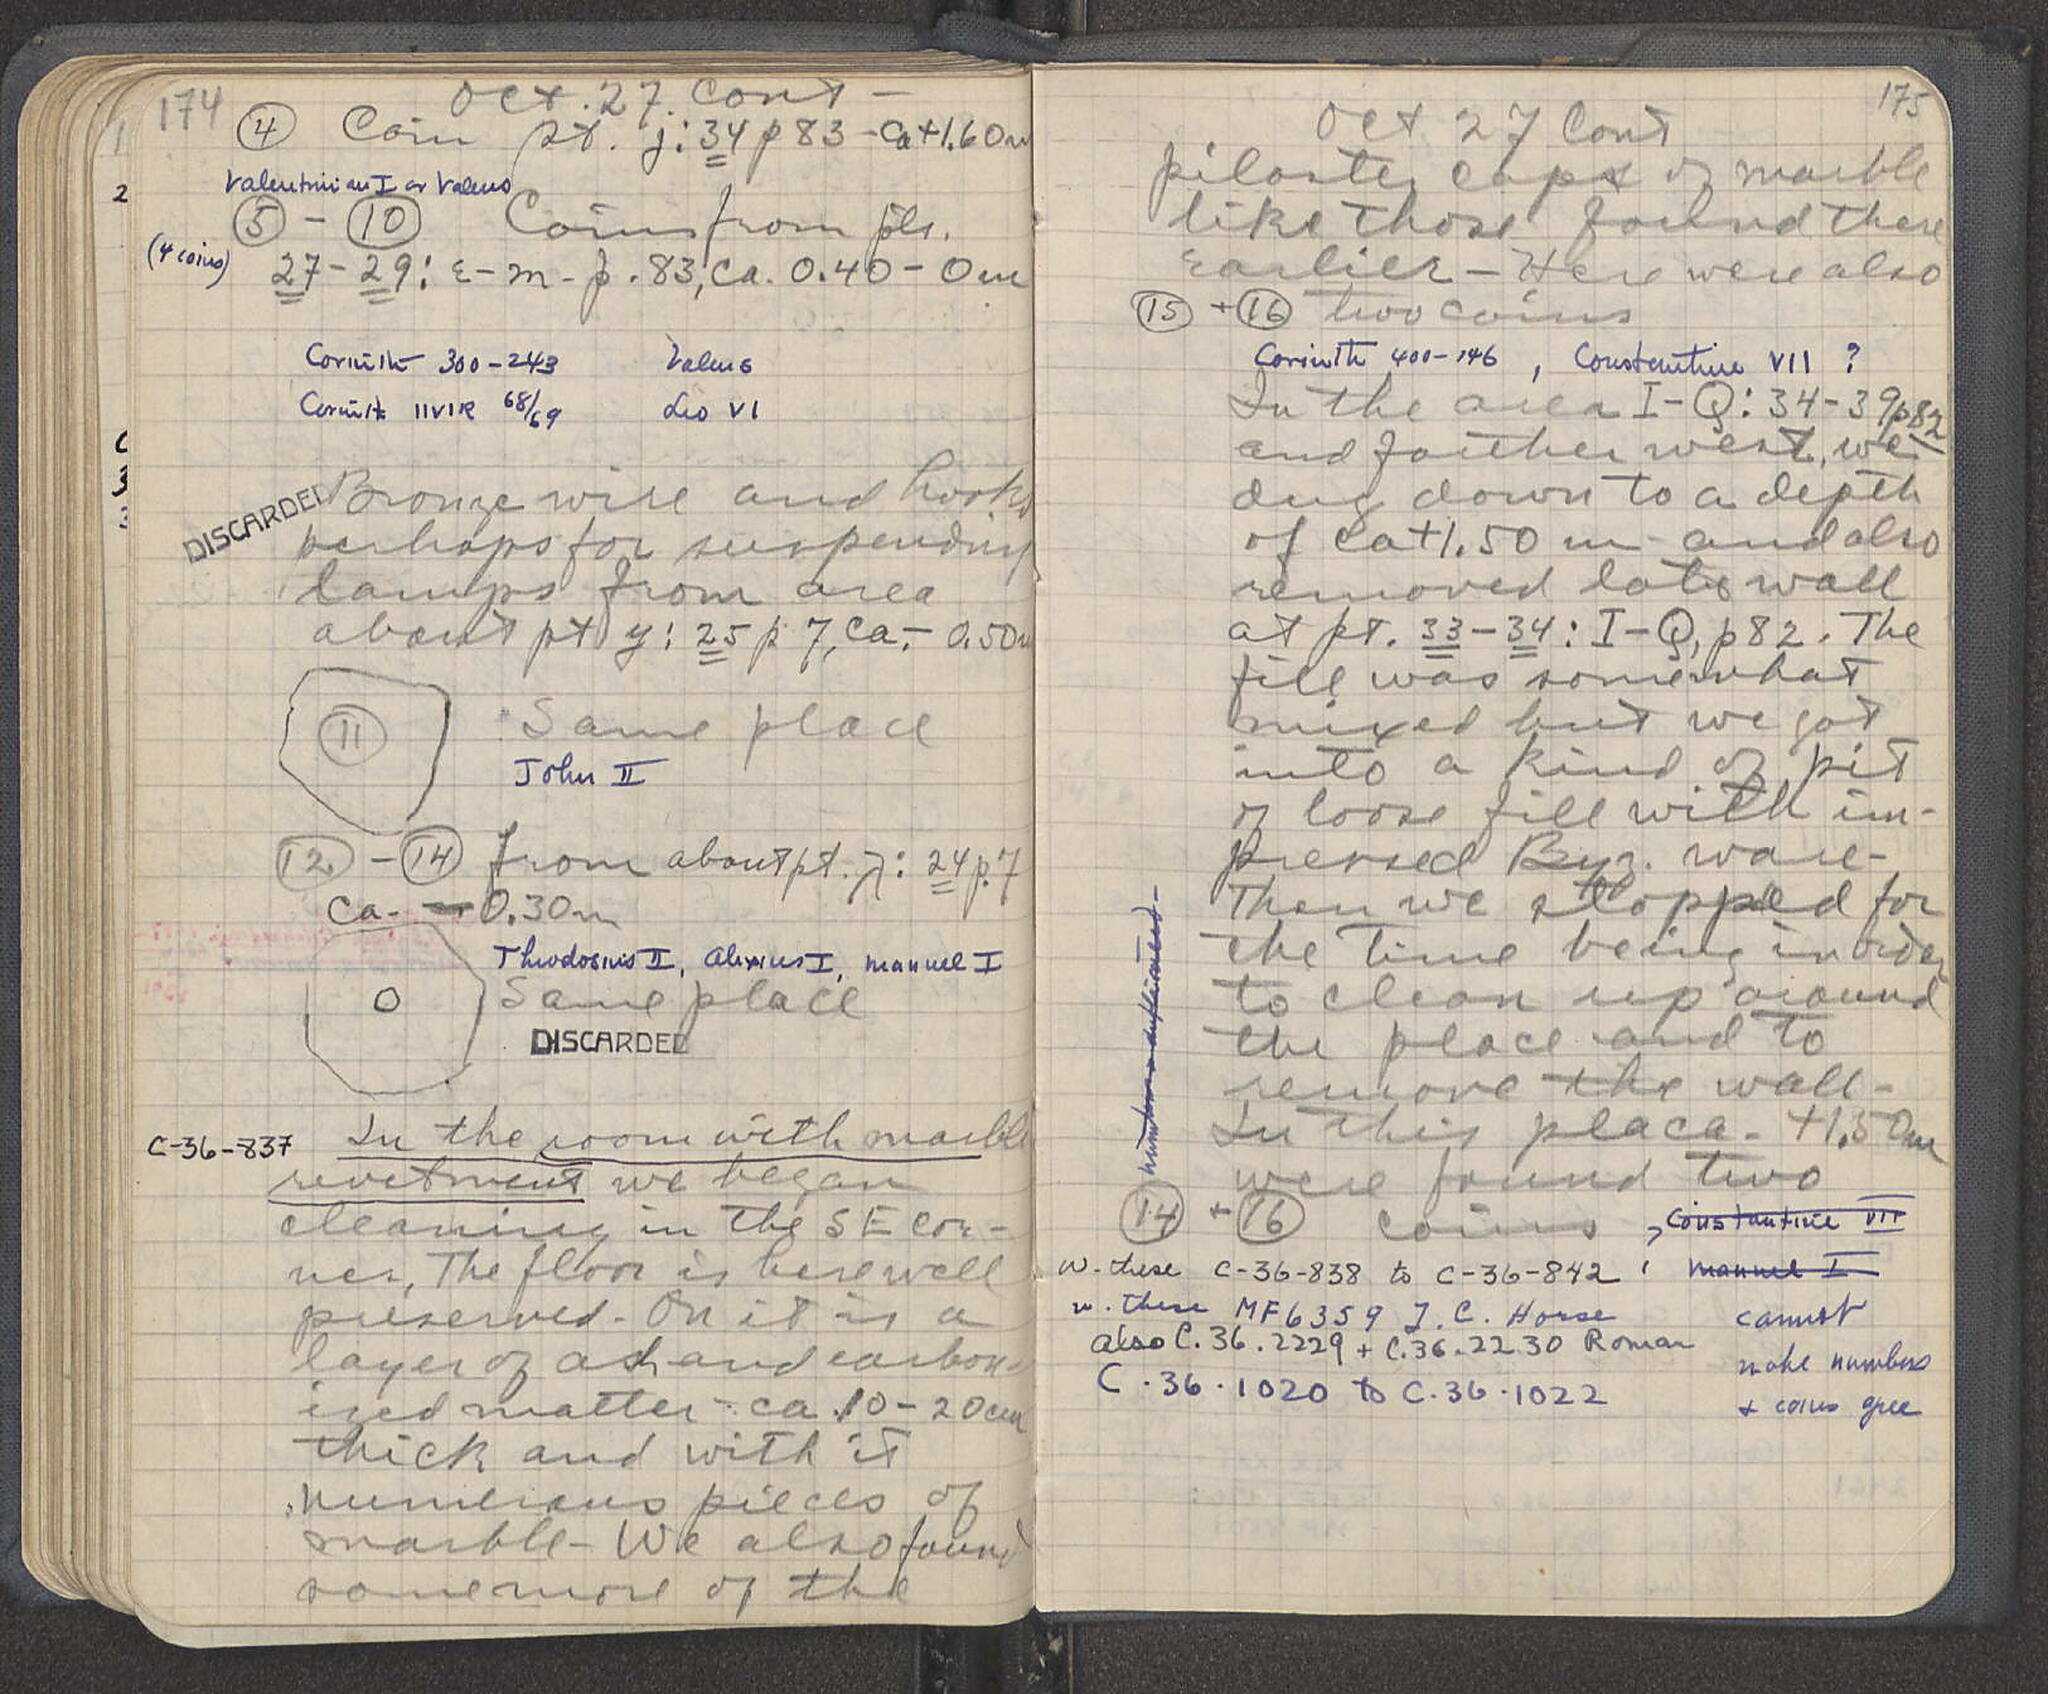 174
Oct. 27. Cont -
④ Coin pt. j: 34 p 83 - Ca +1.60m
Valentinian I or Valens
⑤ - ⑩ Coins from pls.
(4 coins) 27-29: ε-m- p. 83, Ca. 0.40 - 0m
Corinth 300-243 Valens
Corinth IIVIR 68/69 Leo VI
DISCARDED
Bronze wire and hooks
perhaps for suspending
lamps from area
about pt y: 25 p 7, Ca. - 0.50m
⑪ Same place
John II
⑫ - ⑭ from about pt. λ: 24 p. 7
Ca. - 0.30m
Theodosius II, Alexius I, Manuel I
O Same place
DISCARDED
C-36-837 In the room with marble
revetment we began
cleaning in the SE cor-
ner, The floor is here well
preserved - On it is a
layer of ash and carbon-
ized matter - ca. 10-20cm
thick and with it
numerous pieces of
marble - We also found
some more of the
175
Oct 27 Cont
pilaster caps of marble
like those found there
earlier - Here were also
⑮ + ⑯ two coins
Corinth 400-146, Constantine VII ?
In the area I-Q: 34-39 p82
and farther west, we
dug down to a depth
of Ca +1.50 m - and also
removed late wall
at pt. 33-34: I-Q, p82. The
fill was somewhat
mixed but we got
into a kind of pit
of loose fill with im-
pressed Byz. ware -
Then we stopped for
the time being in order
to clean up around
the place and to
remove the wall -
In this place - +1.50m
were found two
⑭ + ⑯ coins, Constantine VII
w. these C-36-838 to C-36-842, Manuel I
w. these MF 6359 T. C. Horse
also C.36.2229 + C.36.2230 Roman
C.36.1020 to C.36.1022
cannot
make numbers
+ coins gree